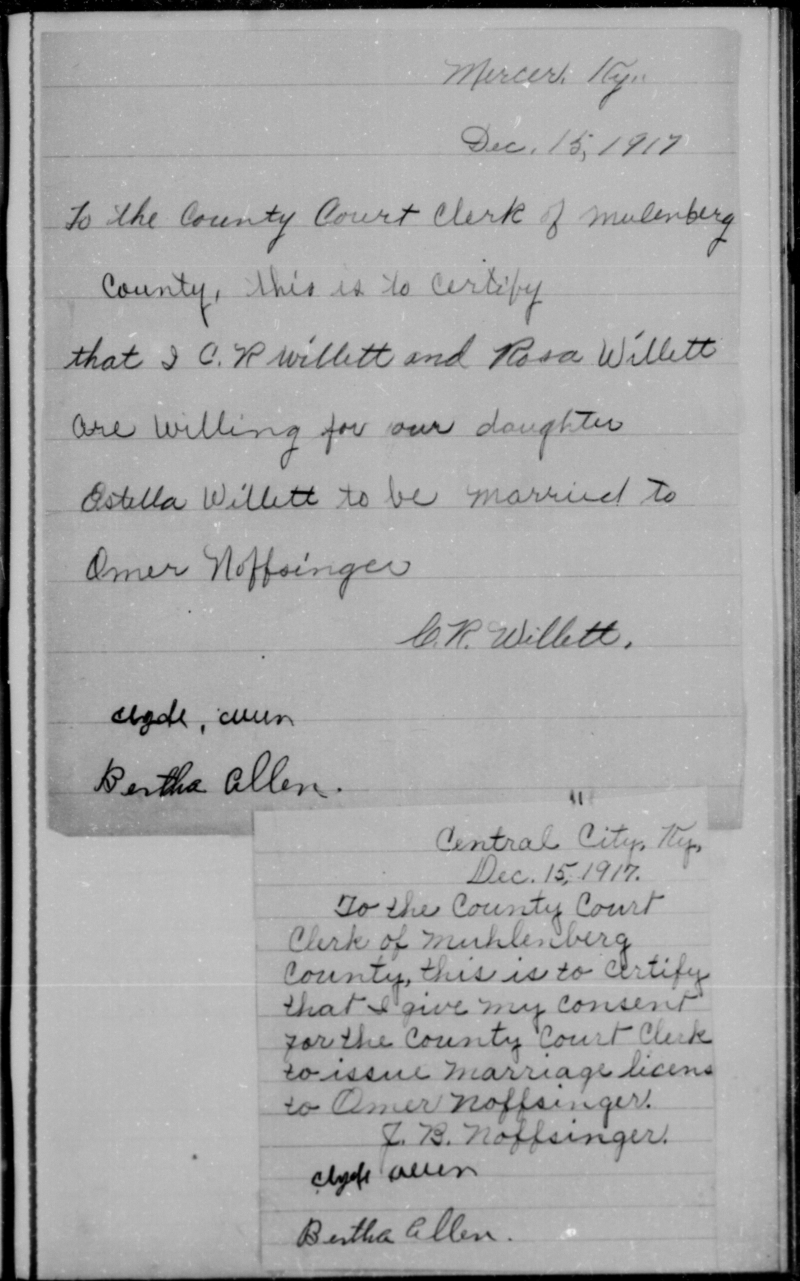 Mercer, Ky.
Dec. 15, 1917
To the County Court Clerk of Mulenberg
County, this is to Certify
that I C. R Willett and Rosa Willett
are Willing for our daughter
Estella Willett to be married to
Omer Noffsinger
C. R. Willett.
Clyde, Allen
Bertha Allen.
"
Central City, Ky,
Dec. 15, 1917.
To the County Court
Clerk of Muhlenberg
County, this is to certify
that I give my consent
for the County Court Clerk
to issue marriage licens
to Omer Noffsinger.
J. B. Noffsinger.
Clyde Allen
Bertha Allen.